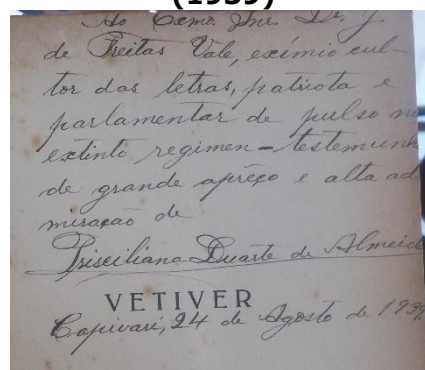 (1939)
Ao Exmo. Snr. Dr. J.
de Freitas Vale, exímio cul-
tor das letras, patriota e
parlamentar de pulso no
extinto regimen - testemunh
de grande aprêço e alta ad
miração de
Prisciliana Duarte de Almeid
VETIVER
Capivari, 24 de Agosto de 1939